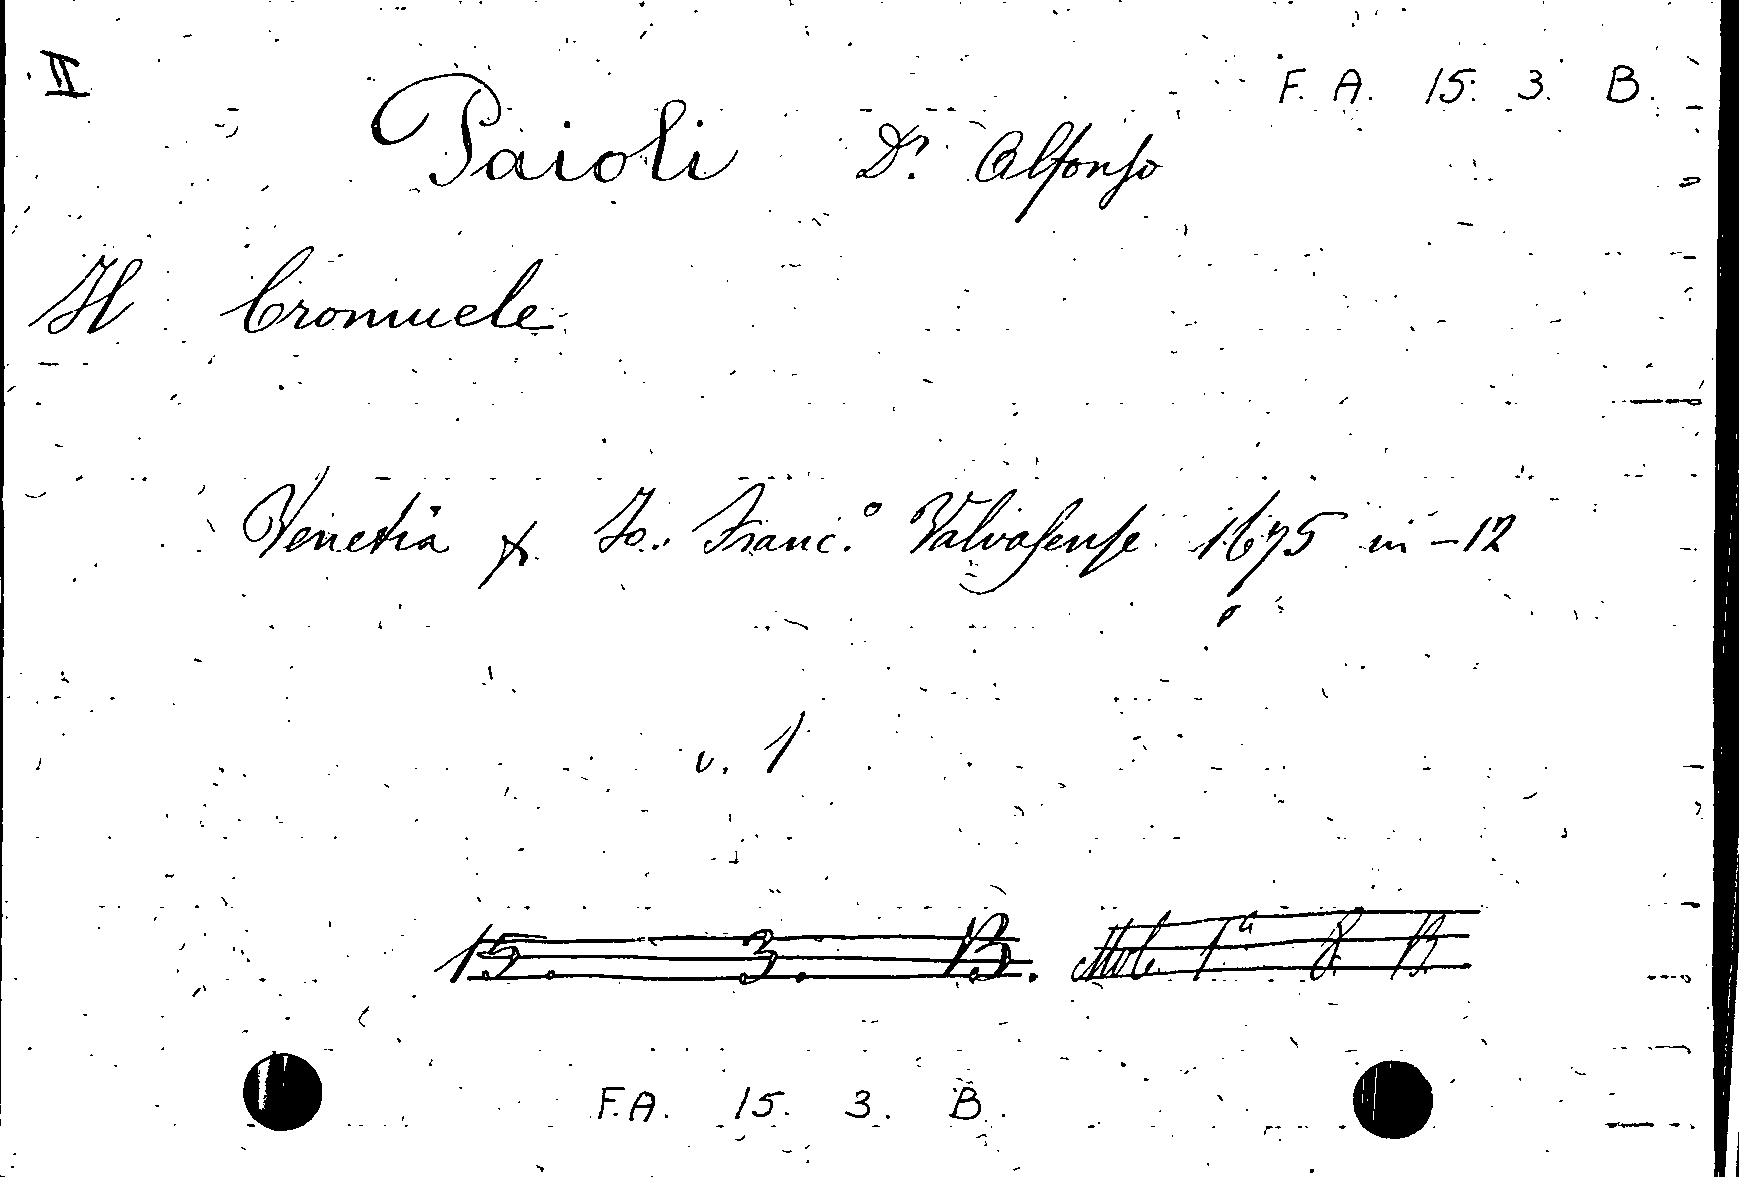 II
F. A. 15. 3. B.
Paioli Dr. Alfonso
Il Cromuele
Venetia p. Io. Franc.º Valvasense 1675 in-12
v. 1
15. 3. B. Mob. 1ª 8. B.
F.A. 15. 3. B.